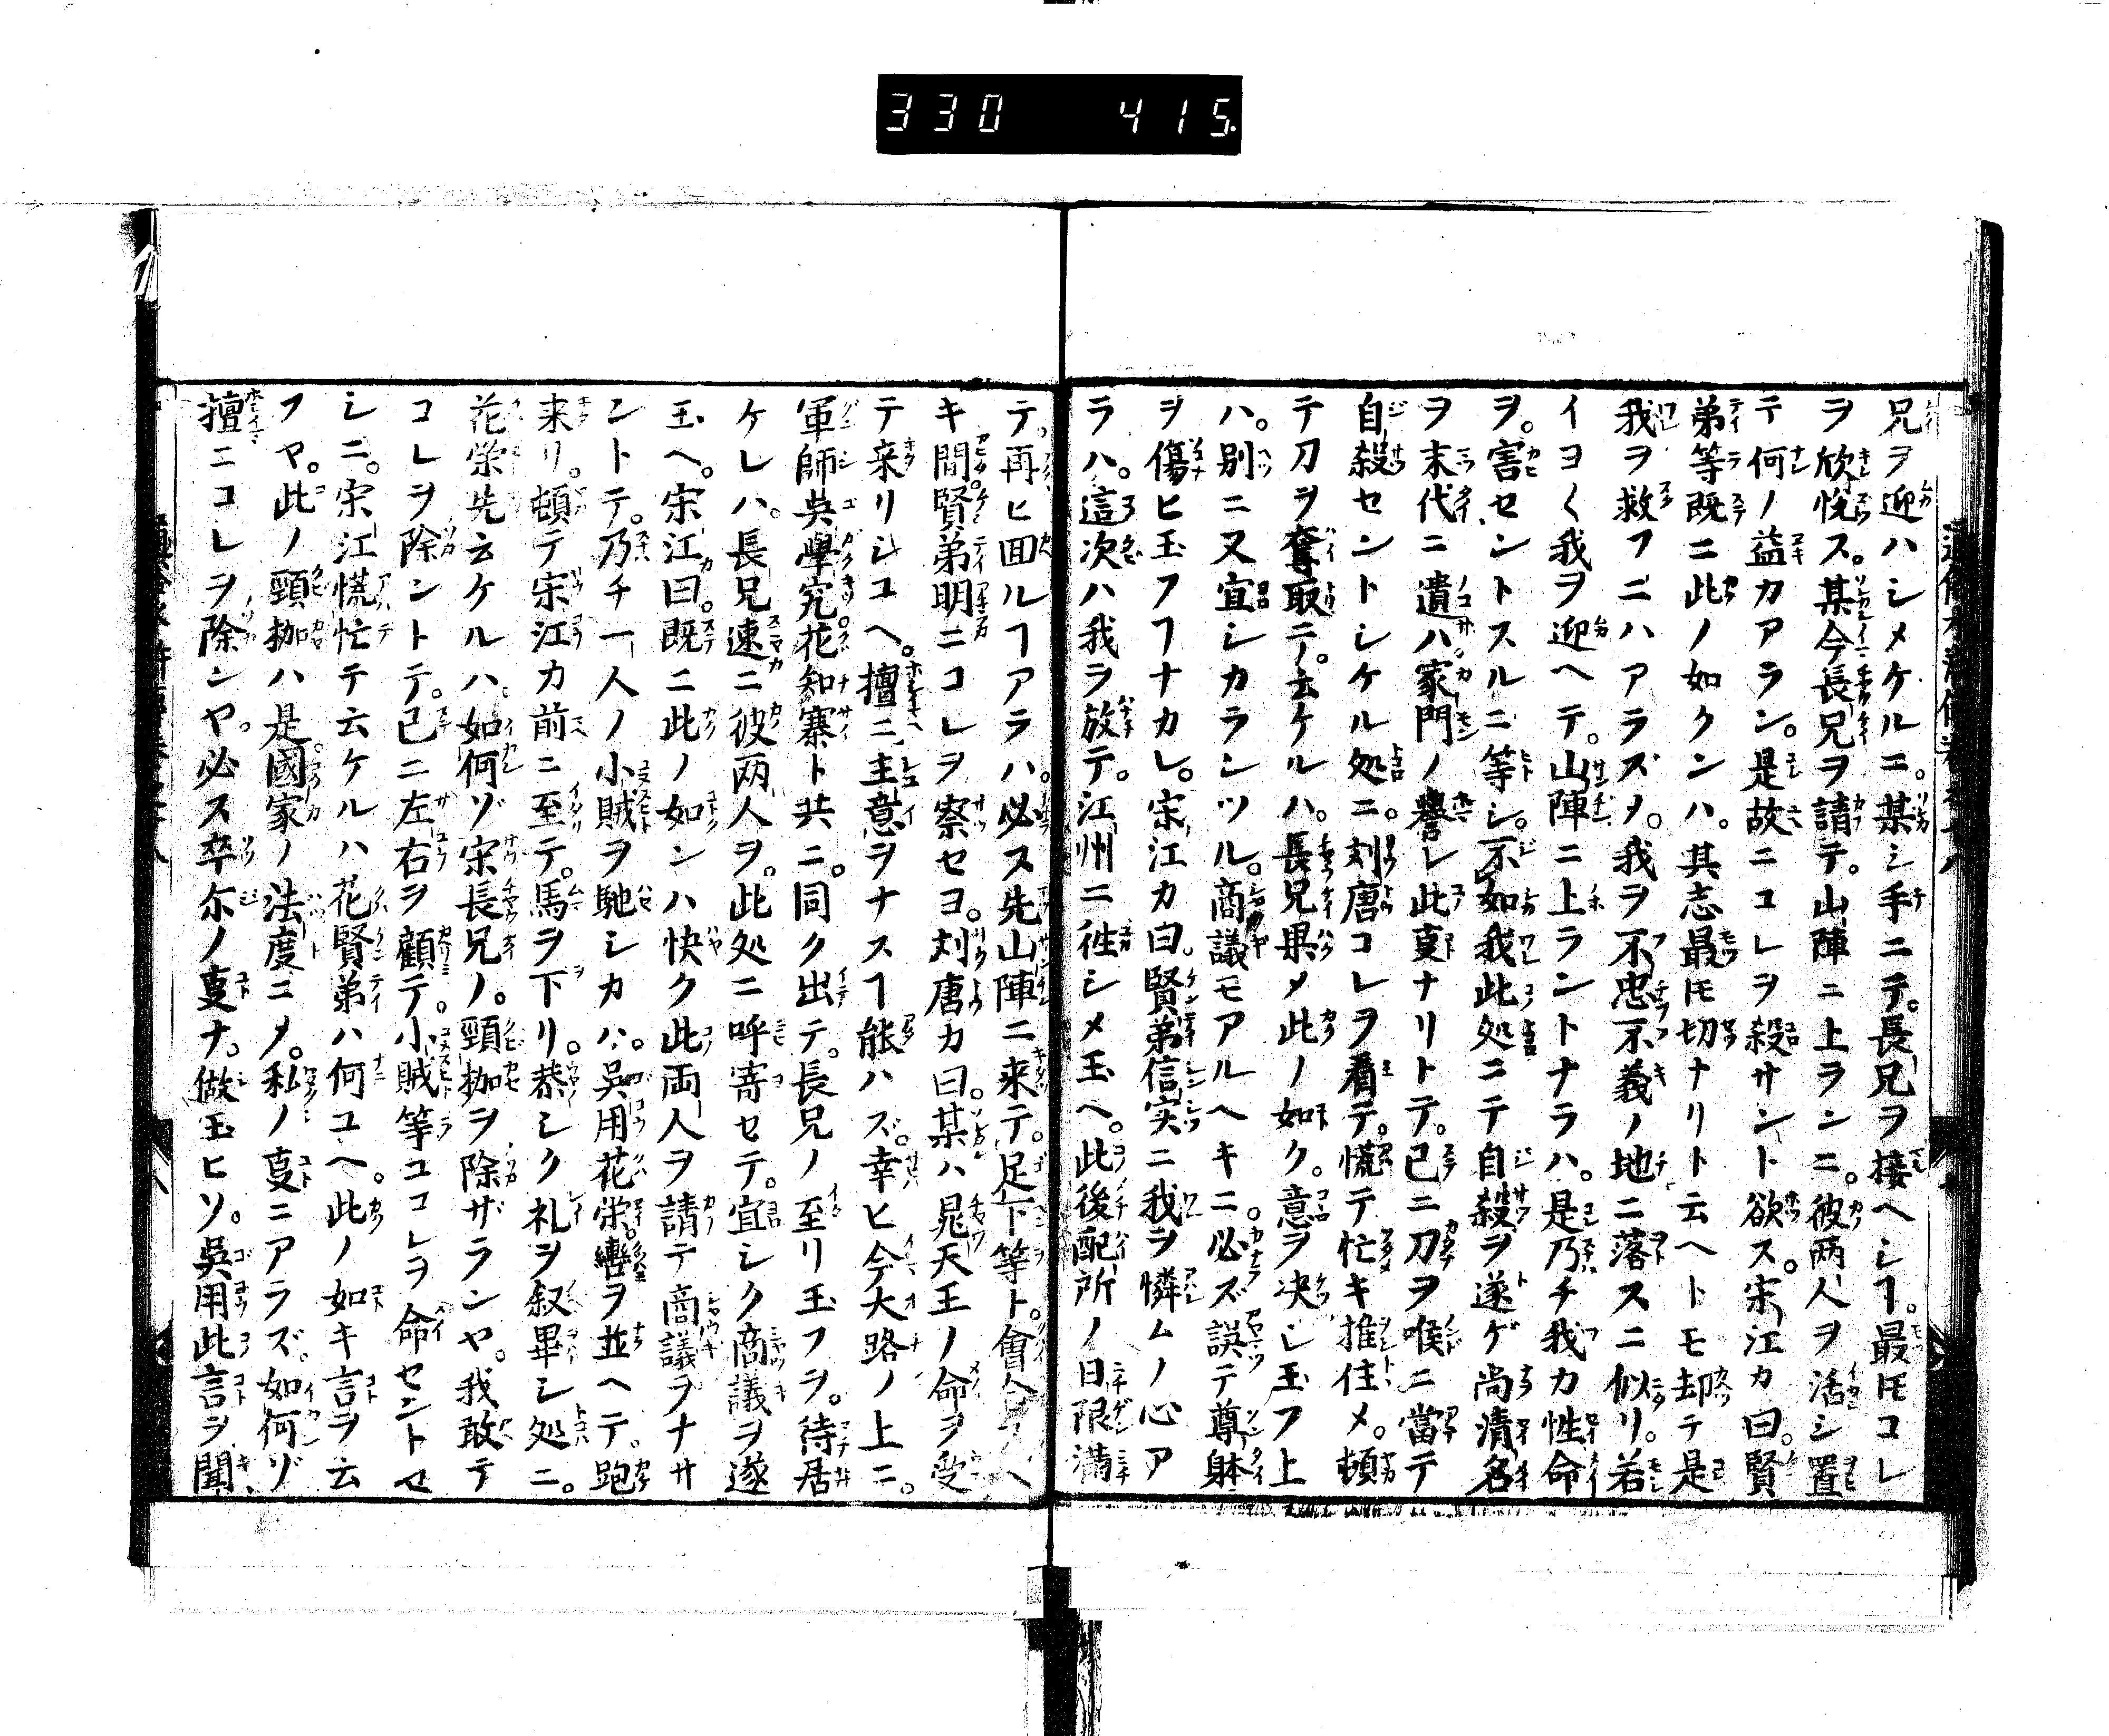 330 415
兄ヲ迎ハシメケルニ。某シ手ニテ。長兄ヲ接ヘシヿ。最モコレ
ヲ欣悦ス。某今長兄ヲ請テ。山陣ニ上ランニ。彼兩人ヲ活シ置
テ何ノ益カアラン。是故ニコレヲ殺サント欲ス。宋江カ曰。賢
弟等既ニ此ノ如クンハ。其志最モ切ナリト云ヘトモ却テ是
我ヲ救フニハアラズメ。我ヲ不忠不義ノ地ニ落スニ似リ。若
イヨ〱我ヲ迎ヘテ。山陣ニ上ラントナラハ。是乃チ我カ性命
ヲ。害セントスルニ等シ。不如我此処ニテ自殺ヲ遂ゲ尚清名
ヲ末代ニ遺ハ。家門ノ譽レ此叓ナリトテ。已ニ刀ヲ喉ニ當テ
自殺セントシケル処ニ。刘唐コレヲ看テ。慌テ忙キ推住メ。頓
テ刀ヲ奪取ニテ。云ケルハ。長兄果メ此ノ如ク。意ヲ决シ玉フ上
ハ。別ニ又宜シカランツル。商議モアルヘキニ。必ズ誤テ尊躰
ヲ傷ヒ玉フヿナカレ。宋江カ曰。賢弟信実ニ我ヲ憐ムノ心ア
ラハ。這次ハ我ヲ放テ。江州ニ徃シメ玉ヘ。此後配所ノ日限満
テ。再ヒ囬ルヿアラハ。必ス先山陣ニ来テ。足下等ト。會合スヘ
キ間。賢弟明ニコレヲ察セヨ。刘唐カ曰。某ハ晁天王ノ命ヲ受
テ来リシユヘ。擅ニ主意ヲナスヿ能ハズ。幸ヒ今大路ノ上ニ。
軍師吳學究花知寨ト共ニ。同ク出テ。長兄ノ至リ玉フヲ。待居
ケレハ。長兄速ニ彼兩人ヲ。此処ニ呼寄セテ。宜シク商議ヲ遂
玉ヘ。宋江曰。既ニ此ノ如ンハ快ク此両人ヲ請テ商議ヲナサ
ントテ。乃チ一人ノ小賊ヲ馳シカハ。吳用花栄。轡ヲ並ヘテ。跑
来リ。頓テ宋江カ前ニ至テ。馬ヲ下リ。恭シク礼ヲ叙畢シ処ニ。
花栄先云ケルハ。如何ゾ宋長兄ノ。頸枷ヲ除ザランヤ。我敢テ
コレヲ除ントテ。已ニ左右ヲ顧テ。小賊等ニコレヲ命セントセ
シニ。宋江慌忙テ云ケルハ花賢弟ハ何ユヘ。此ノ如キ言ヲ云
フヤ。此ノ頸枷ハ是國家ノ法度ニメ。私ノ叓ニアラズ。如何ゾ
擅ニコレヲ除ンヤ。必ス卒尓ノ叓ナ。做玉ヒソ。吳用此言ヲ聞